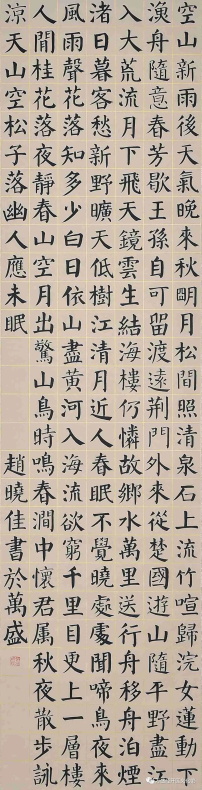 空山新雨後天氣晚來秋朙月松間照清泉石上流竹喧歸浣女蓮動下
漁舟隨意春芳歇王孫自可留渡遠荊門外來從楚國遊山隨平野盡江
入大荒流月下飛天鏡雲生結海樓仍憐故鄉水萬里送行舟移舟泊煙
渚日暮客愁新野曠天低樹江清月近人春眠不覺曉處處聞啼鳥夜來
風雨聲花落知多少白日依山盡黃河入海流欲窮千里目更上一層樓
人閒桂花落夜靜春山空月出驚山鳥時鳴春澗中懷君属秋夜散步詠
涼天山空松子落幽人應未眠
趙曉佳書於萬盛